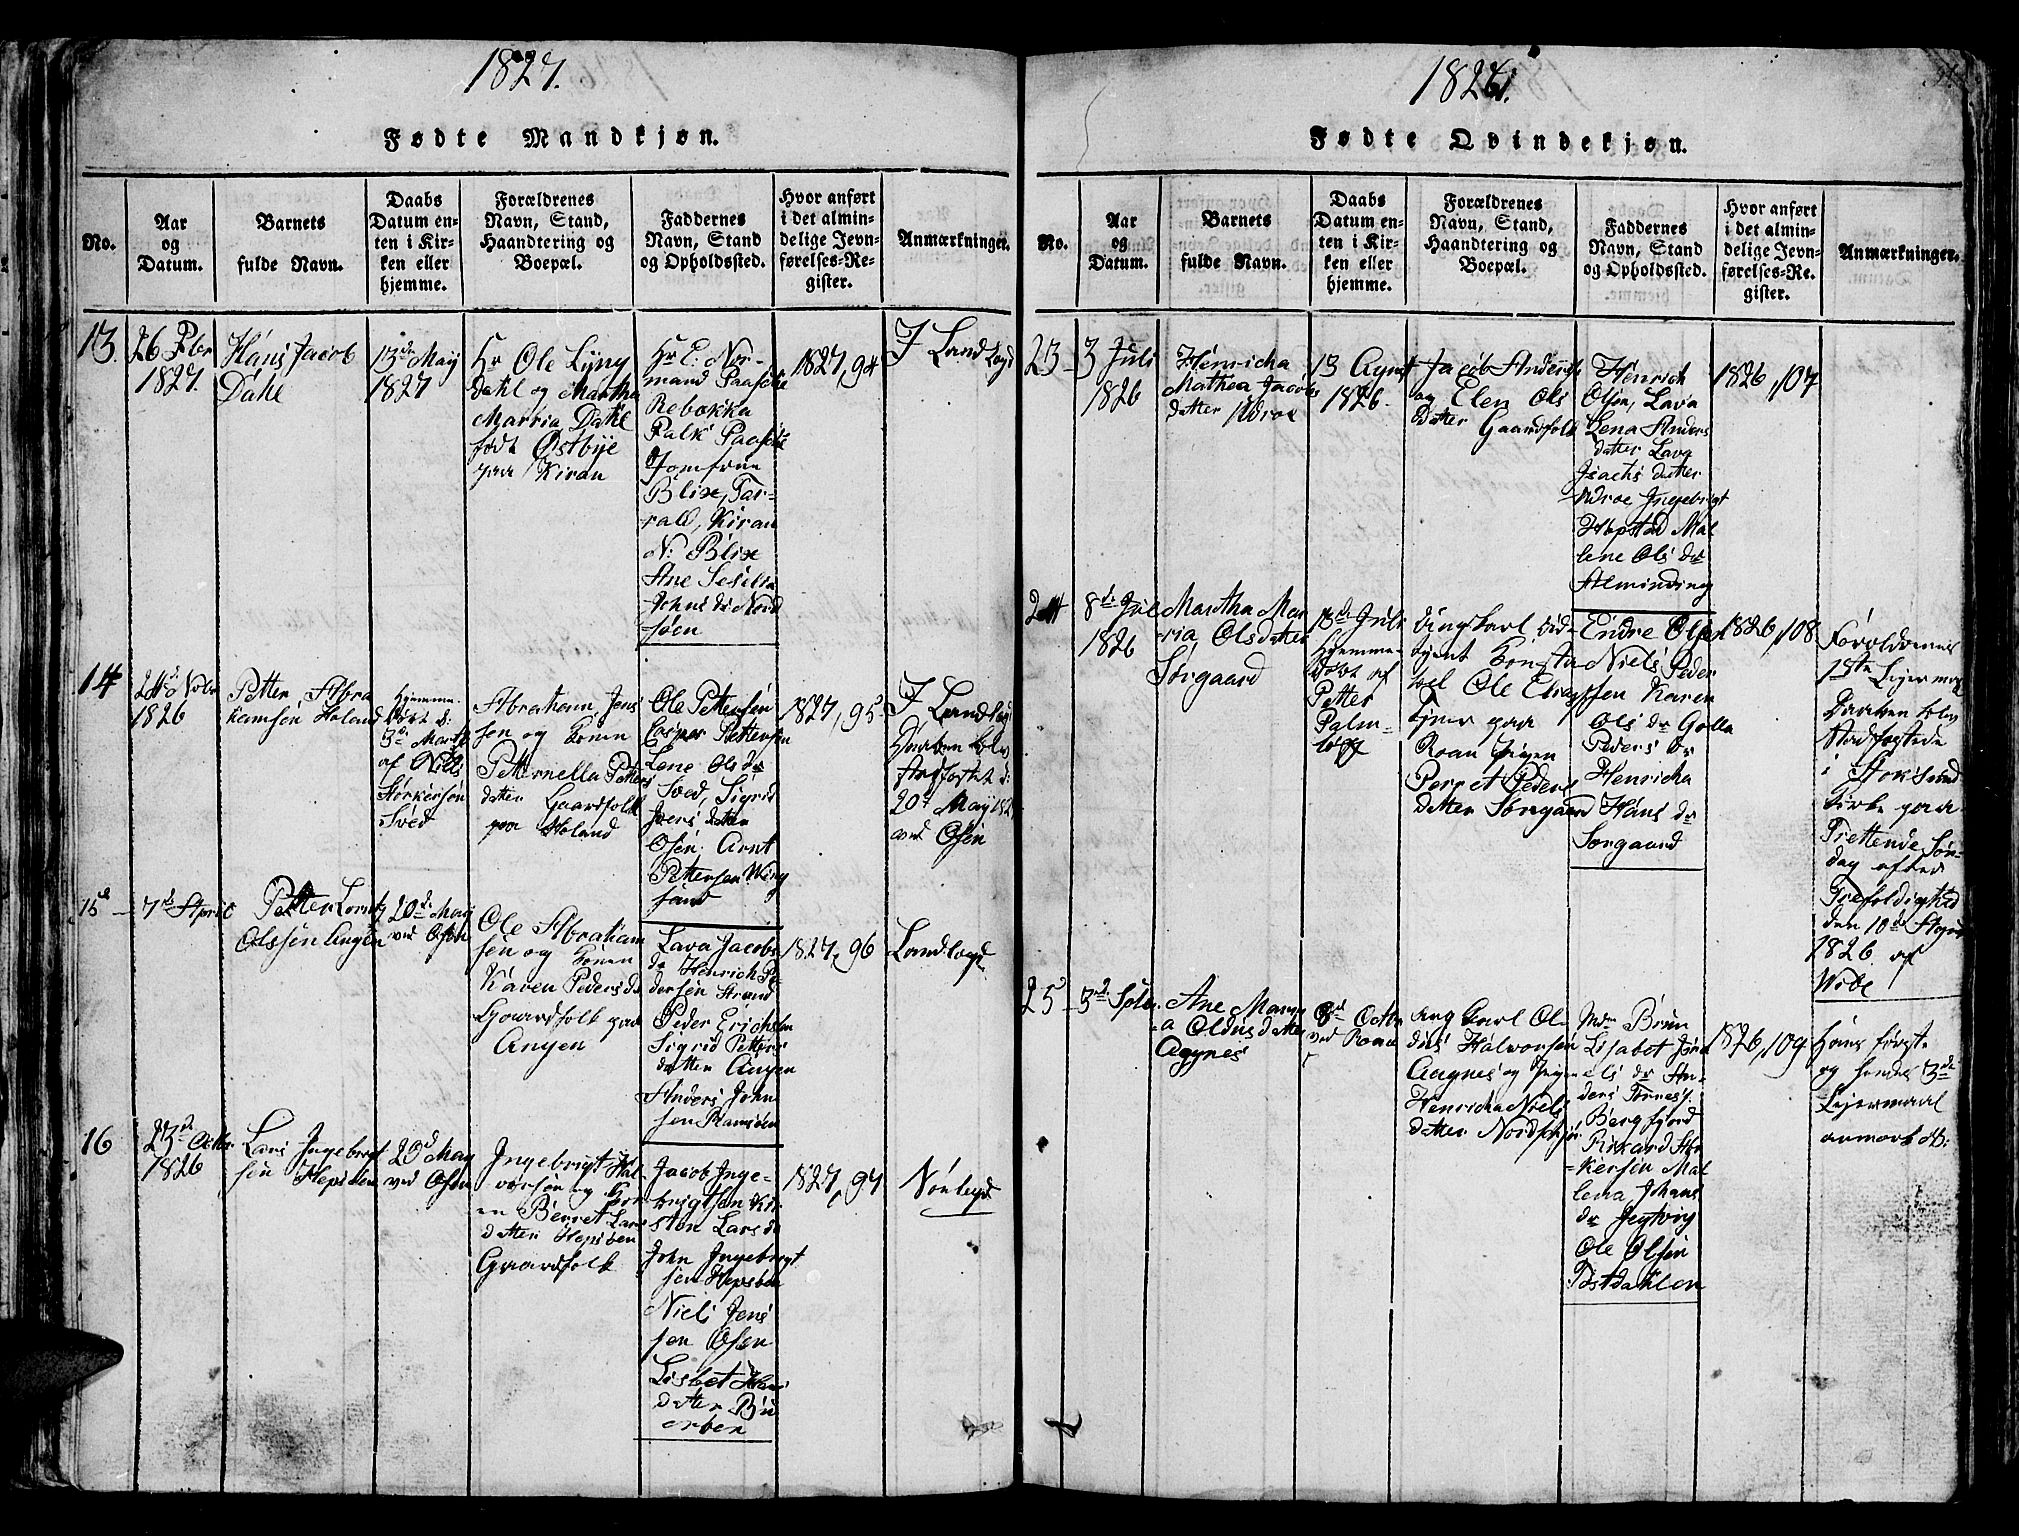 1827.
Fødte Mandkjøn.
No.
Aar
og
Datum.
Barnets
fulde Navn.
Daabs
Datum en-
ten i Kir-
ken eller
hjemme.
Forældrenes
Navn, Stand,
Haandtering og
Boepæl.
Faddernes
Navn, Stand
og Opholdssted.
Hvor anført
i det almin-
delige Jevn-
førelses-Re-
gister.
Anmærkninger.
13.
26 Febr
1827.
Hans Jacob
Dahl
13de May
1827
Hr Ole Lyng
Dahl og Martha
Marria Dahl
født Østbye
paa Kiran
Hr E. Nor-
mand Paasche
Rebækka
Falk Paasche
Jomfrue
Blix, Tar-
rald, Kiran
N: Blix
Ane Sesilia
Johns dr Nord
søen
1827, 94
I Landlogd
14
24de Nobr
1826
Petter Abra
hamsøn Holand
Hjemme-
døbt d:
3de Marti
af Niels
Størkersøn
Sved
Abraham Jens
søn og Konen
Petternella Petters
datter Gaardfolk
paa Holand
Ole Pettersen
Casper Pettersen
Lene Ols dr
Sved, Sigrid
Joers datter
Osen. Arnt
Pettersen Wing
sand
1827, 95
I Landlogd
Daaben blev
stadfæstet d:
20de May 182
ved Osen
15de
7de April
Petter Lorntz
Olssen Angen
20de May
ved Osen
Ole Abraham
søn og Konen
Karen Peders dr
Gaardfolk paa
Angen
Lava Jacobs
dr Henrich Pe
dersen Strand
Peder Erichsen
Sigrid Petters
datter Angen
Anders John
sen Ramsøen
1827, 96
Landlogd
16
23de Octbr
1826
Lars Ingebrigt
søn Hepsøen
20de May
ved Osen
Ingebrigt Hal
vorsen og Kon
en Berret Lars
datter Hepsøen
Gaardfolk
Jacob Inge-
brigtsen Kir
sten Lars dr
John Ingebrigt
sen Hepsøen
Niels Jens
sen Osen
Lisbet Hans
datter Bu
arben
1827, 97
Nonlegd
1826.
Fødte Qvindekjøn.
No.
Aar
og
Datum.
Barnets
fulde Navn.
Daabs
Datum en-
ten i Kir-
ken eller
hjemme.
Forældrenes
Navn, Stand,
Haandtering og
Boepæl.
Faddernes
Navn, Stand
og Opholdssted.
Hvor anført
i det almin-
delige Jevn-
førelses-Re-
gister.
Anmærkninger.
23
3 Juli
1826
Henricha
Mathea Jacobs
datter Udroe
13 Agust
1826.
Jacob Anders
og Elen Ols
datter Gaardfolk
Henrich
Olsen, Lava
Lena Anders
datter Lava
Isachs datter
Udroe Ingebrigt
Hopstad Mal
lene Ols dr
Alminding
1826, 107
24
8de Juli
1826
Martha Mar
ria Olsdatter
Sørgaard
13de Juli
Hjemme-
døbt af
Petter
Palm-
Ungkarl
Ole
paa
Roan Pigen
Berret Peders
datter Sørgaard
Endre Olsen
Niels Peder
sen Karen
Ols dr
Peders dr
Henricha
Hans dr
Sørgaard
1826, 108
Foreldrenes
1ste Lejermaal
Daaben blev
stadfæstede
i Stoksund
kirke paa
Trettende Søn-
dag efter
Trefoldighed
den 10de
1826 af
Wibe
25
3de Sebtr.
Ane Marya
Oldusdatter
Aggnes
8de Octbr
ved Roan
Ung Karl Ol
dus Halvorsen
Aagnes og Pigen
Henricha Niels
datter
Mdm Brun
Lisabet
els dr An-
ders
Bergfjord
Rikkard Stør
kersen Mal
lena Johans
dr
Ole Olsen
Tostdahlen
1826, 109
Hans første
og hendes 3de
Lejermaal
anmærk